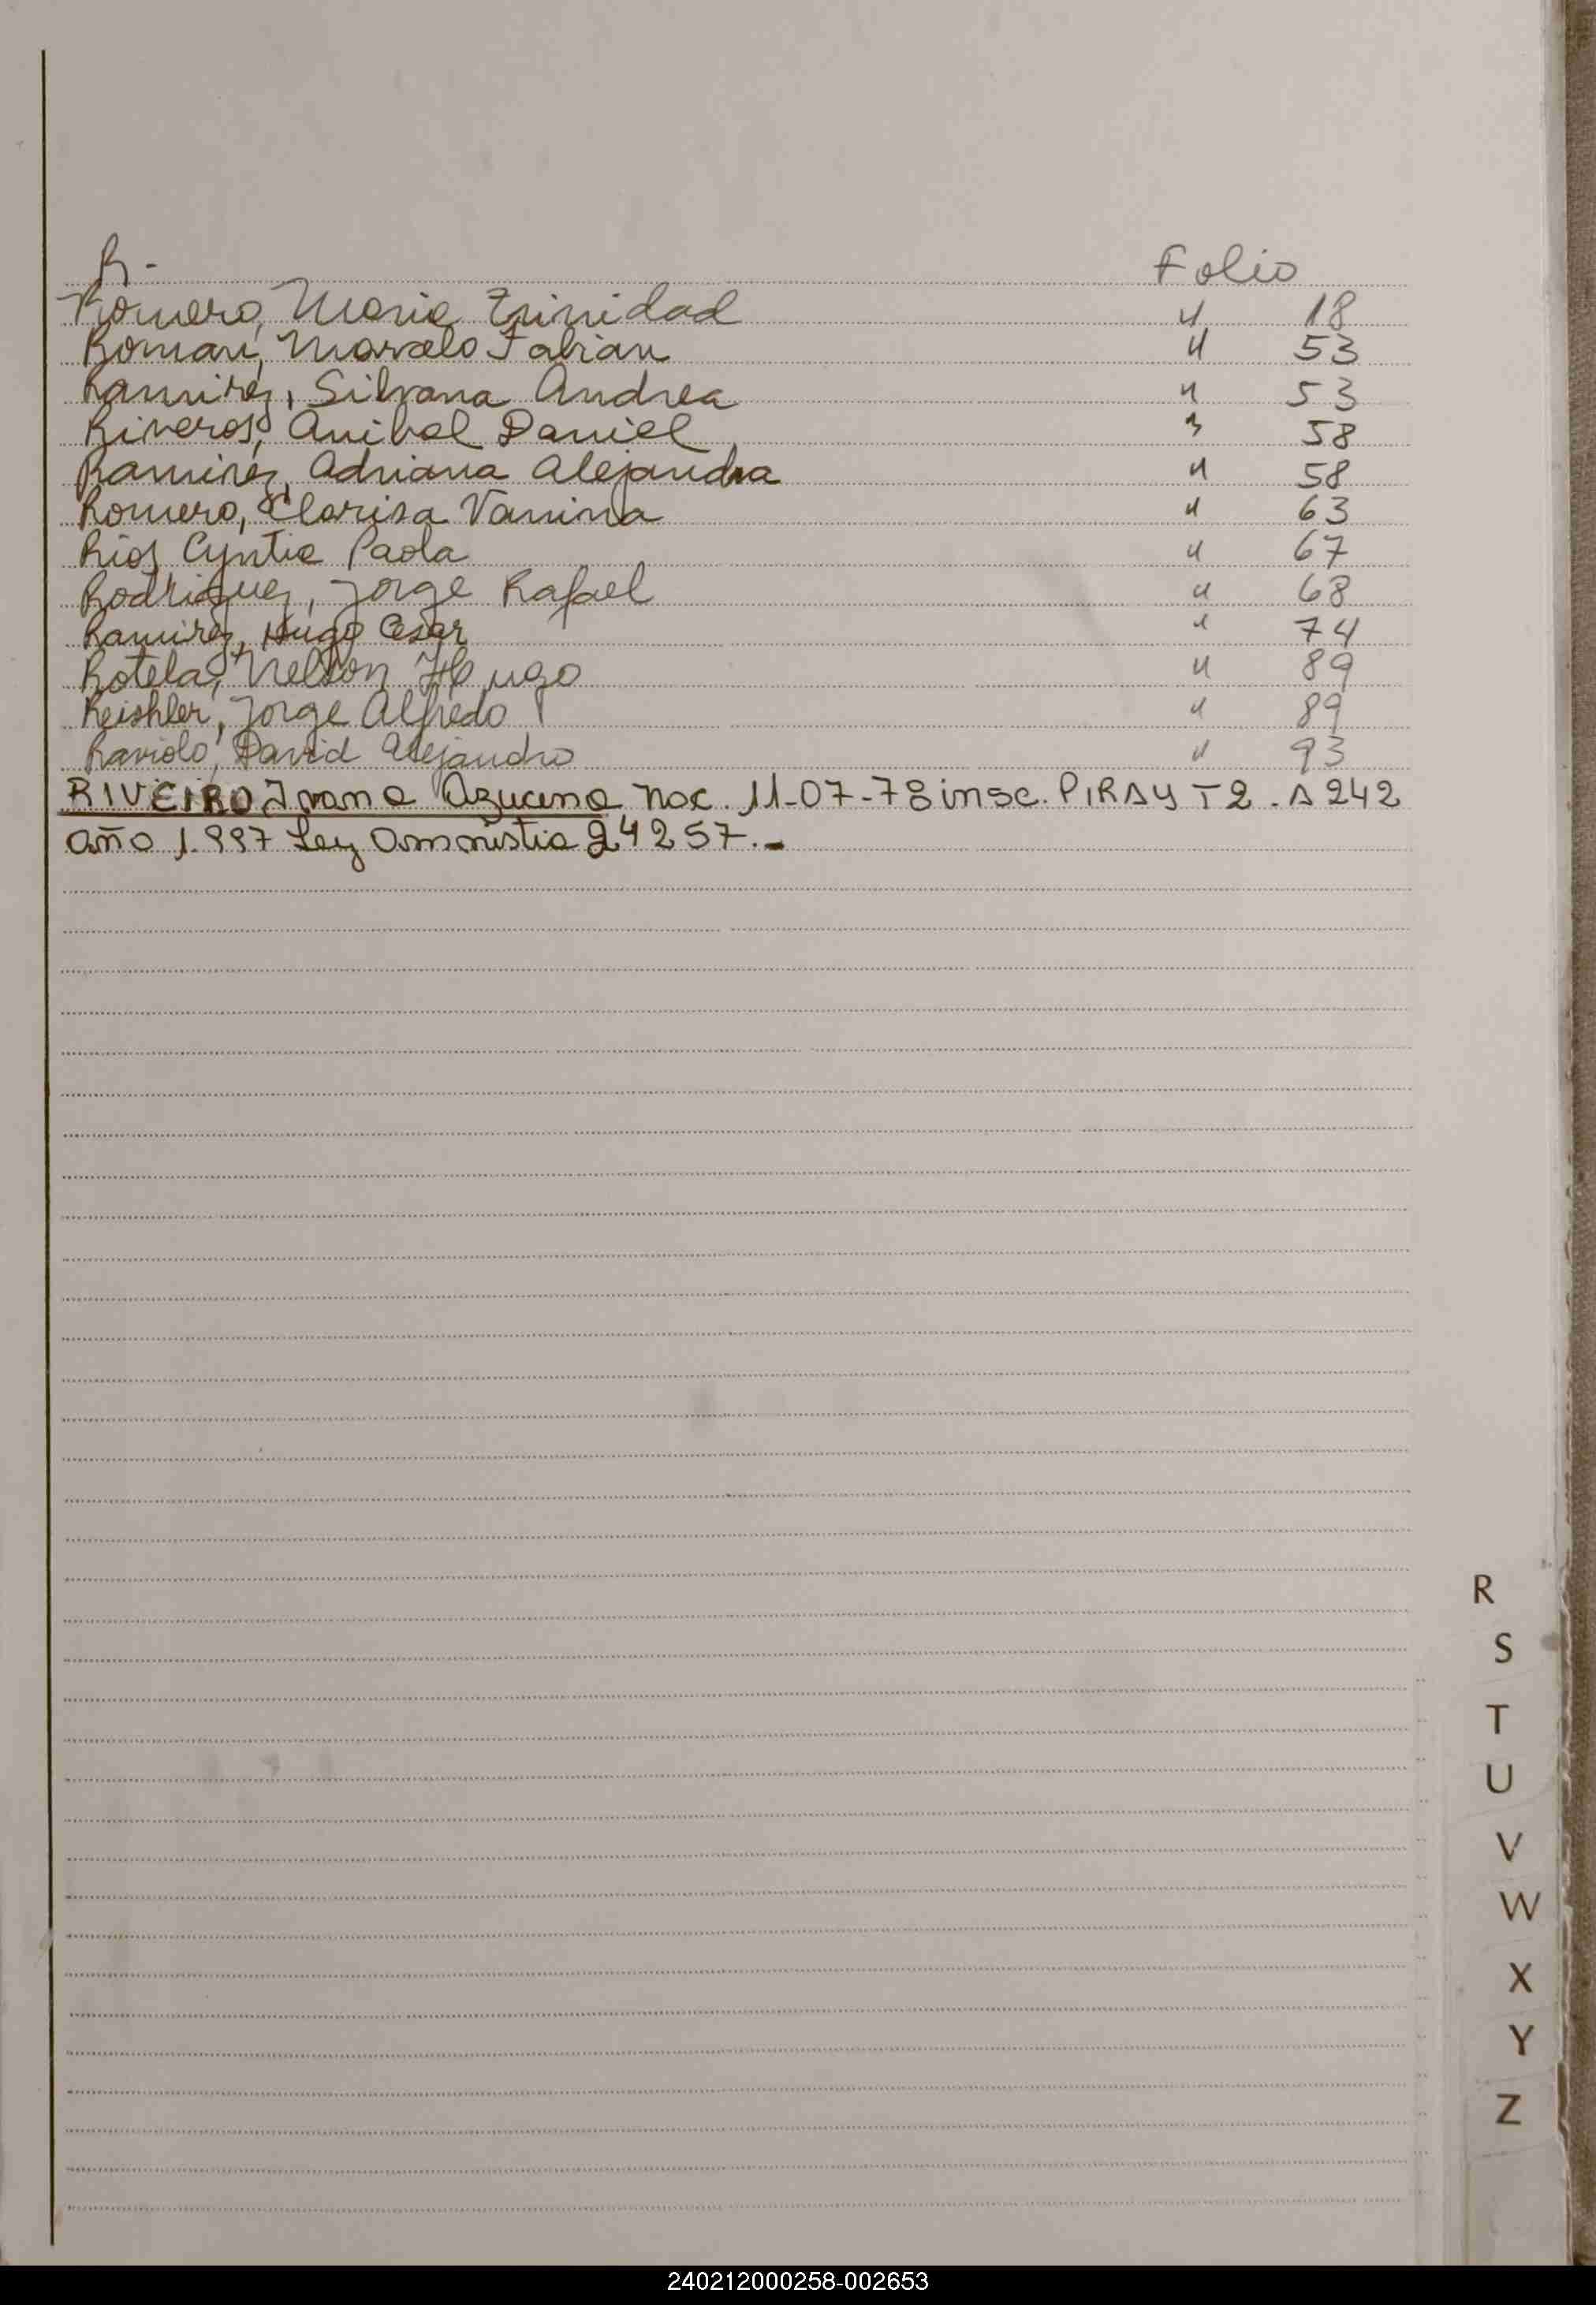 R.- Folio
Romero, Maria Trinidad " 18
Roman, Marcelo Fabian " 53
Ramirez, Silvana Andrea " 53
Riveros, Anibal Daniel " 58
Ramirez, Adriana Alejandra " 58
Romero, Clarisa Vanina " 63
Rios Cyntia Paola " 67
Rodriguez, Jorge Rafael " 68
Ramirez, Hugo Cesar " 74
Rotela, Nelson Hugo " 89
Reishler, Jorge Alfredo " 89
Raviolo, David Alejandro " 93
RIVEIRO Ivana Azucena Nac. 11-07-78 insc. PIRAY T2. A 242
año 1.997 Ley Amnistia 24257.-
R
S
T
U
V
W
X
Y
Z
240212000258-002653